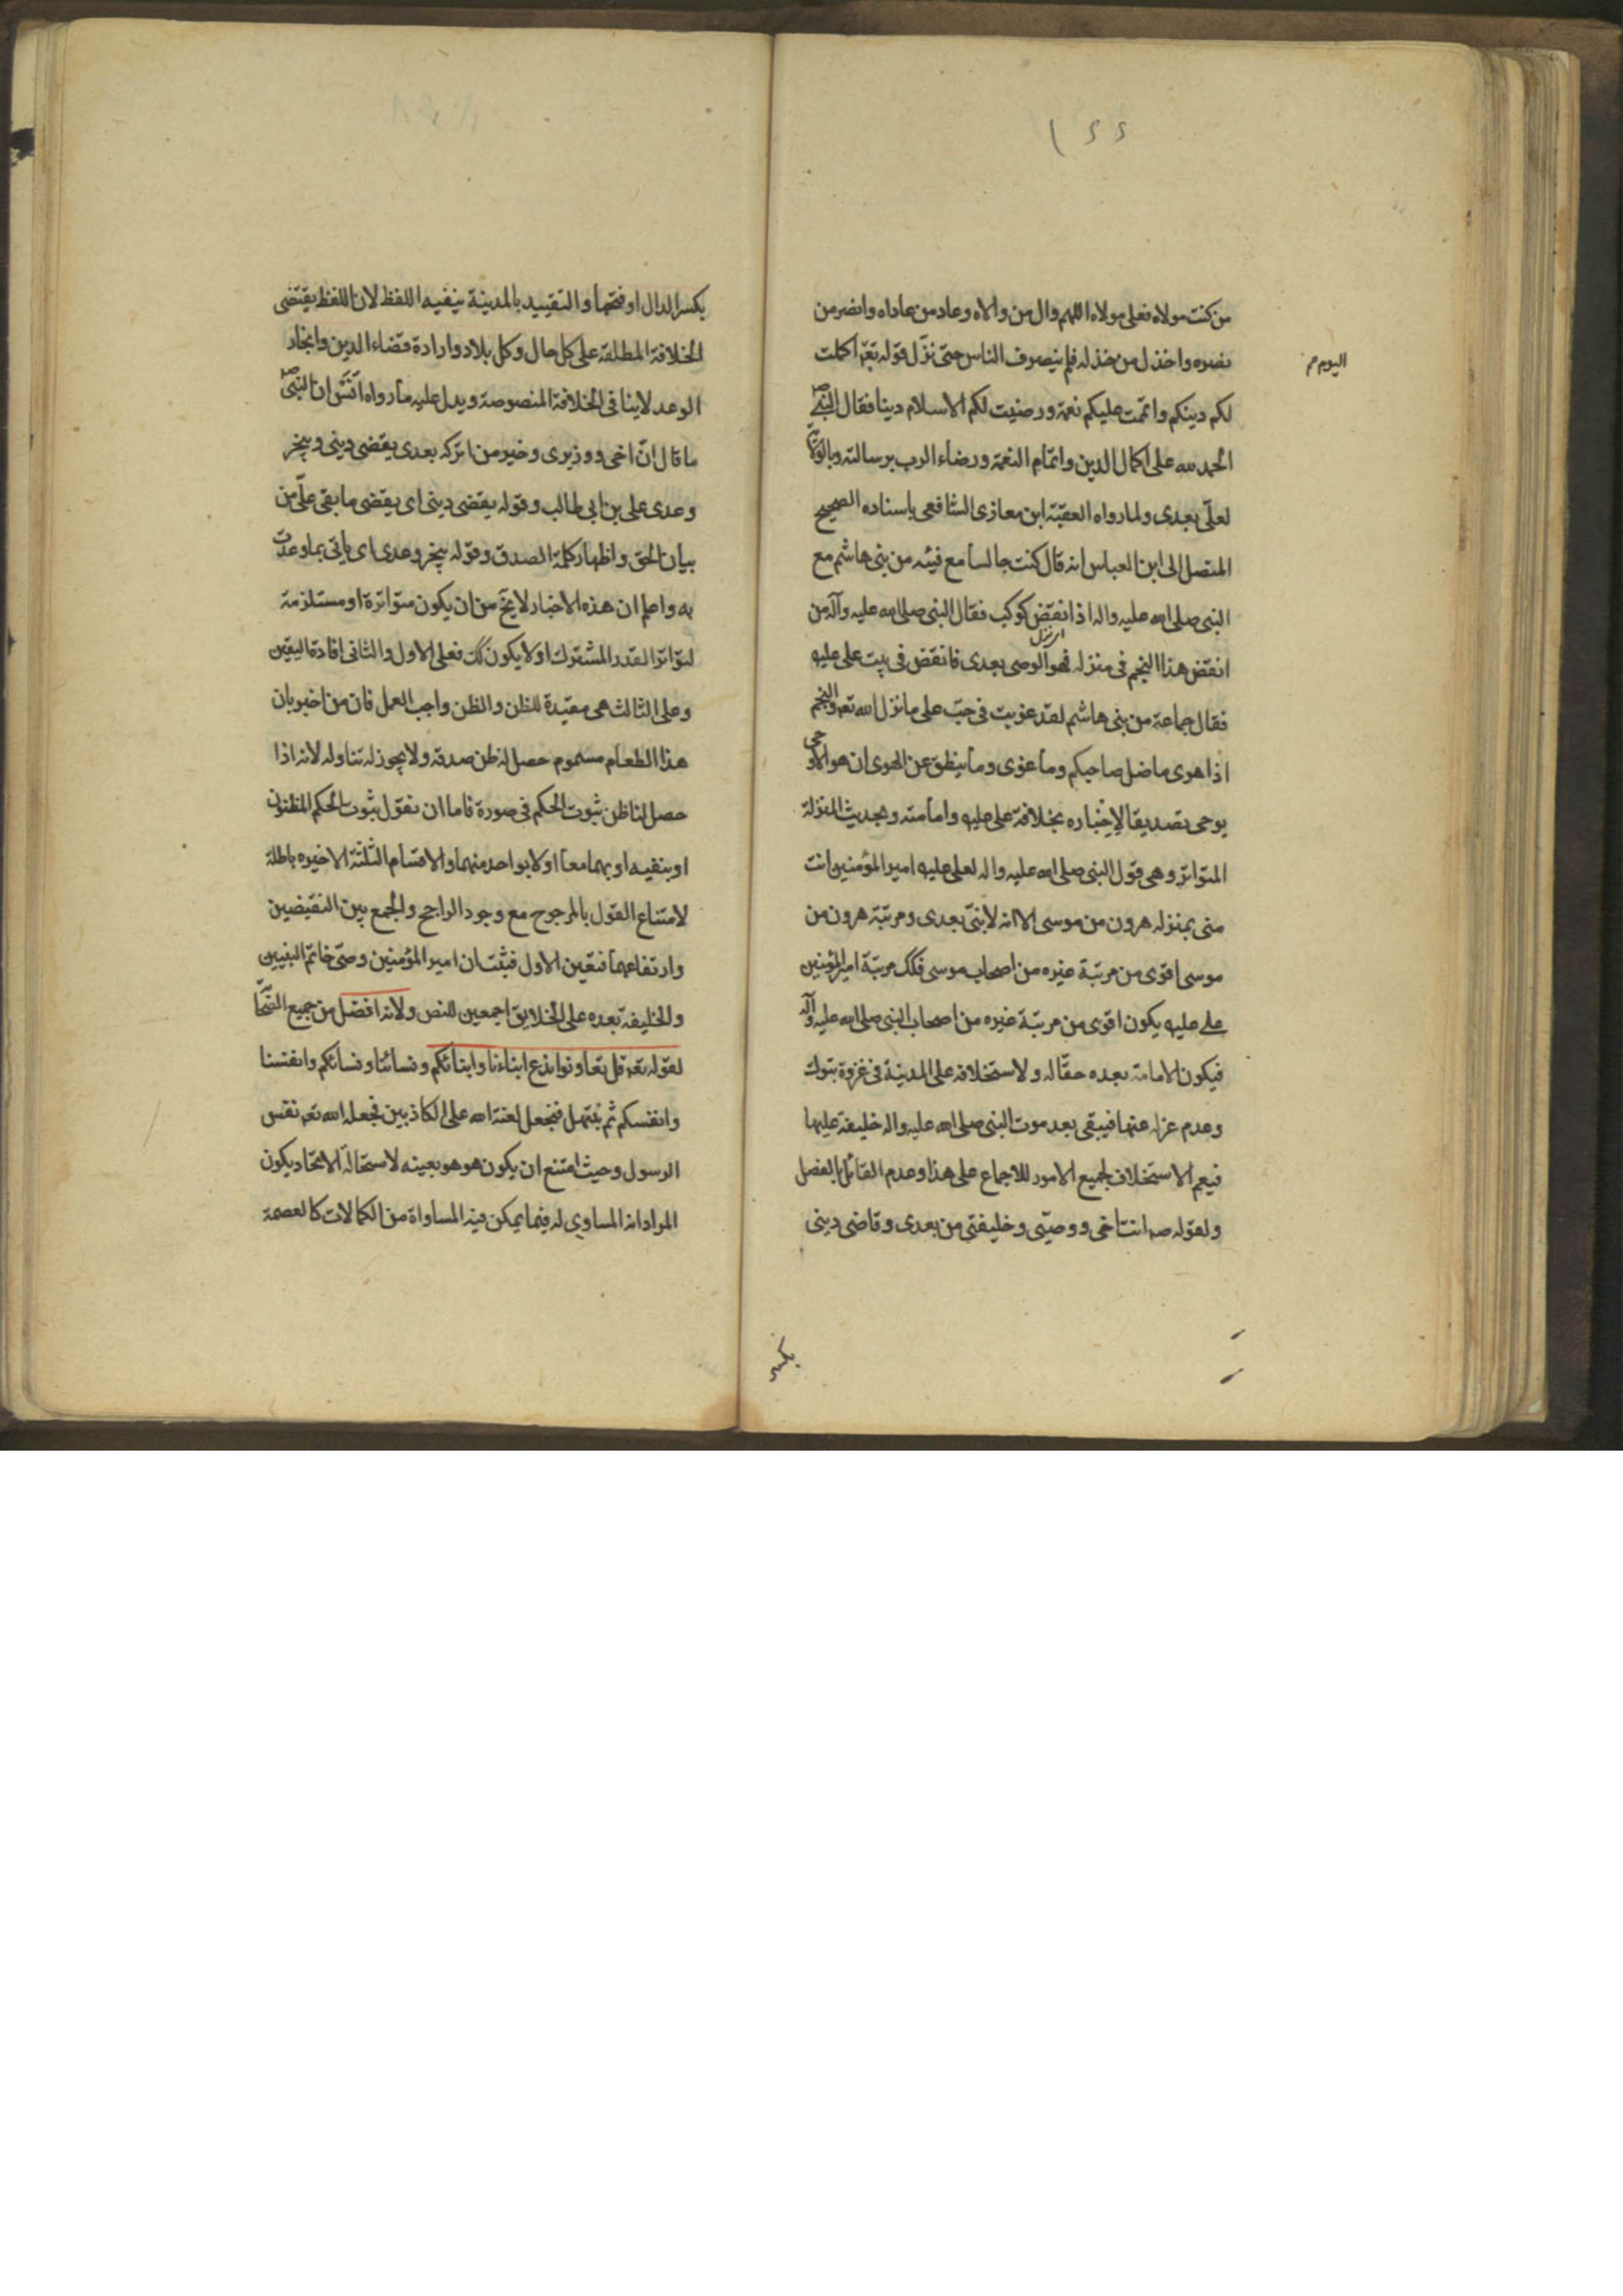 ١٤٤
من كنت مولاه فعلى مولاه اللهم وال من والاه وعاد من عاداه وانصر من
نصره واخذل من خذله فلم ينصرف الناس حتى نزّل قوله تعم اكملت
اليوم م
لكم دينكم واتممت عليكم نعمة ورضيت لكم الاسلام دينا فقال النبى ص
الحمد لله على اكمال الدين واتمام النعمة ورضاء الرب برسالته وبالولاية
لعلّى بعدى ولما رواه الفقيه ابن معازى الشافعى باسناده الصحيح
المتصل الى ابن العباس انه قال كنت جالسا مع فيئه من بنى هاشم مع
النبى صلى الله عليه واله اذا نقض كوكب فقال النبى صلى الله عليه وآله من
انقض هذا النجم فى منزله فهو الوصى بعدى فانقض فى بيت على عليه
فقال جماعة من بنى هاشم لقد غويت فى حبّ على ما نزل الله تعم والنجم
اذا هوى ما ضل صاحبكم وما غوى وما ينطق عن الهوى ان هو الا وحى
يوحى تصديقا لإخباره بخلافة على عليه وامامته وبحديث المنزلة
المتواتر وهى قول النبى صلى الله عليه واله لعلى عليه امير المؤمنين انت
منى بمنزله هرون من موسى الا انه لا بنىّ بعدى ومرتبة هرون من
موسى اقوى من مرتبة غيره من اصحاب موسى فكك مرتبة امير المؤمنين
على عليه يكون اقوى من مرتبة غيره من اصحاب النبى صلى الله عليه وآله
فيكون الامامة بعده حقا له ولاستخلافه على المدينة فى غزوة تبوك
وعدم عزله عنها فيبقى بعد موت النبى صلى الله عليه واله خليفة عليها
فيعم الاستخلاف لجميع الامور للاجماع على هذا وعدم القائل بالفصل
ولقوله صم انت اخى ووصيّى وخليفتى من بعدى وقاضى دينى
بكسر
بكسر الدال او فتحها والتقييد بالمدينة ينفيه اللفظ لان اللفظ يقتضى
الخلافة المطلقة على كل حال وكل بلاد وارادة قضاء الدين وانجاز
الوعد لا ينافى الخلافة المنصوصة ويدل عليه ما رواه انس ان النبى ص
ما قال انّ اخى ووزيرى وخير من اتركه بعدى يقضى دينى وينجز
وعدى على بن ابى طالب وقوله يقضى دينى اى يقضى ما بقى علّى من
بيان الحق واظهار كلمة الصدق وقوله ينجز وعدى اى ياتى بما وعدت
به واعلم ان هذه الاخبار لا يخ من ان يكون متواترة او مستلزمة
لتواتر القدر المشترك او لا يكون كك فعلى الاول والثانى افادة اليقين
وعلى الثالث هى مفيدة للظن والظن واجب العمل فان من اخبر بان
هذا الطعام مسموم حصل له ظن صدقه ولا يجوز له تناوله لانه اذا
حصل لنا ظن ثبوت الحكم فى صورة فاما ان نقول بثبوت الحكم المظنون
او بنفيه او بهما معا او لا بواحد منهما والاقسام الثلثة الاخيره باطلة
لامتناع القول بالمرجوح مع وجود الراجح والجمع بين النقيضين
وارتفاعهما فتعين الاول فثبت ان امير المؤمنين وصى خاتم النبيين
والخليفة بعده على الخلايق اجمعين للنص ولانه افضل من جميع الصحابة
لقوله تعم قل تعاونوا ندع ابناءنا وابنائكم ونسائنا ونسائكم وانفسنا
وانفسكم ثم نبتهل فنجعل لعنة الله على الكاذبين فجعله الله تعم نفس
الرسول وحيث امتنع ان يكون هو هو بعينه لاستحالة الاتحاد يكون
المراد انه المساوي له فيما يمكن فيه المساواة من الكمالات كالعصمة